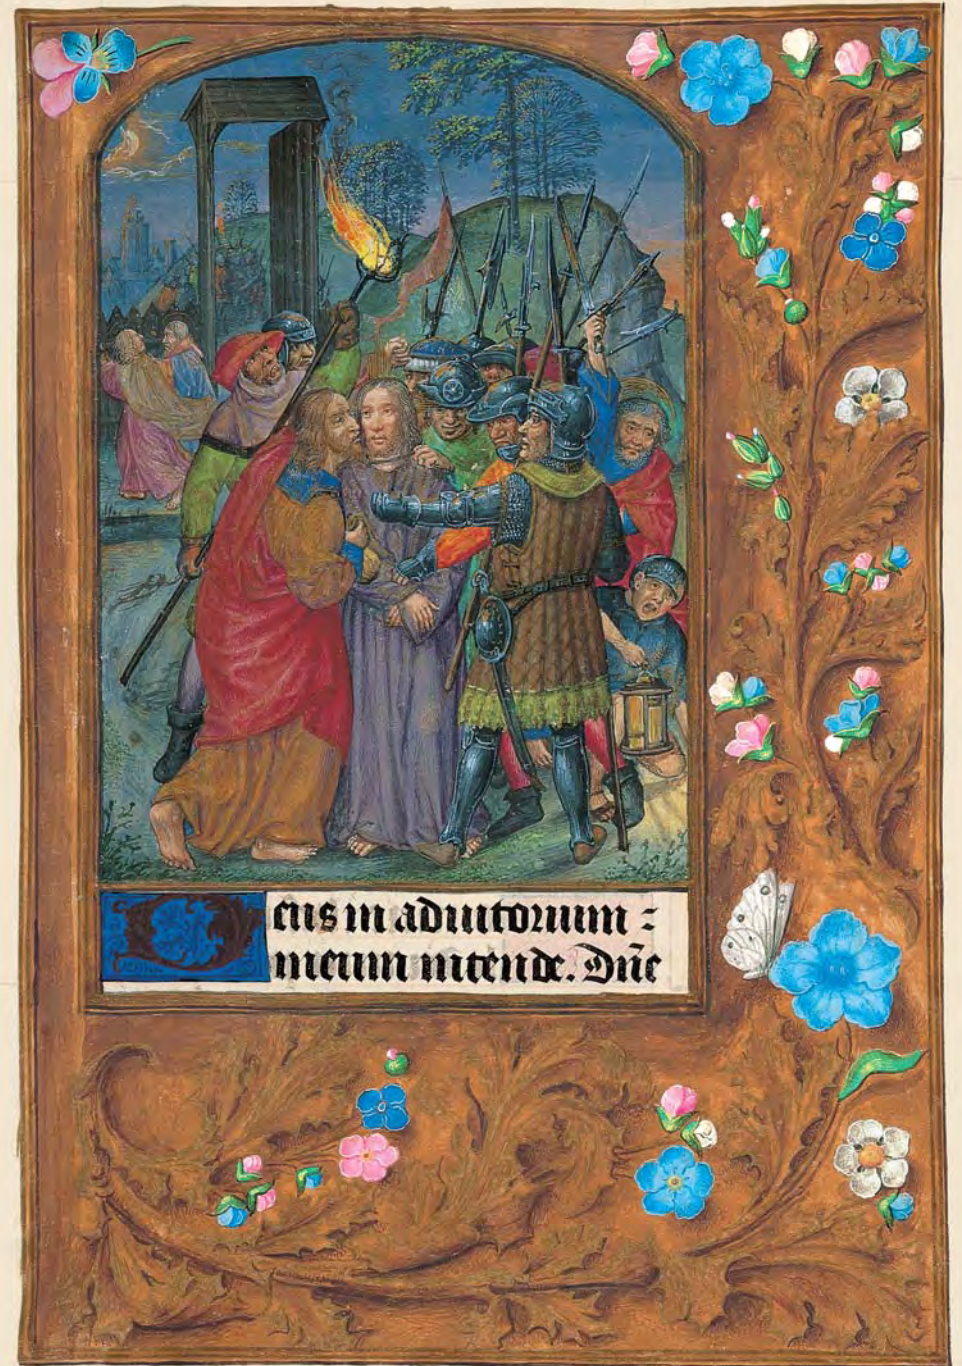 Deus in adiutorium :
meum intende. Dñe